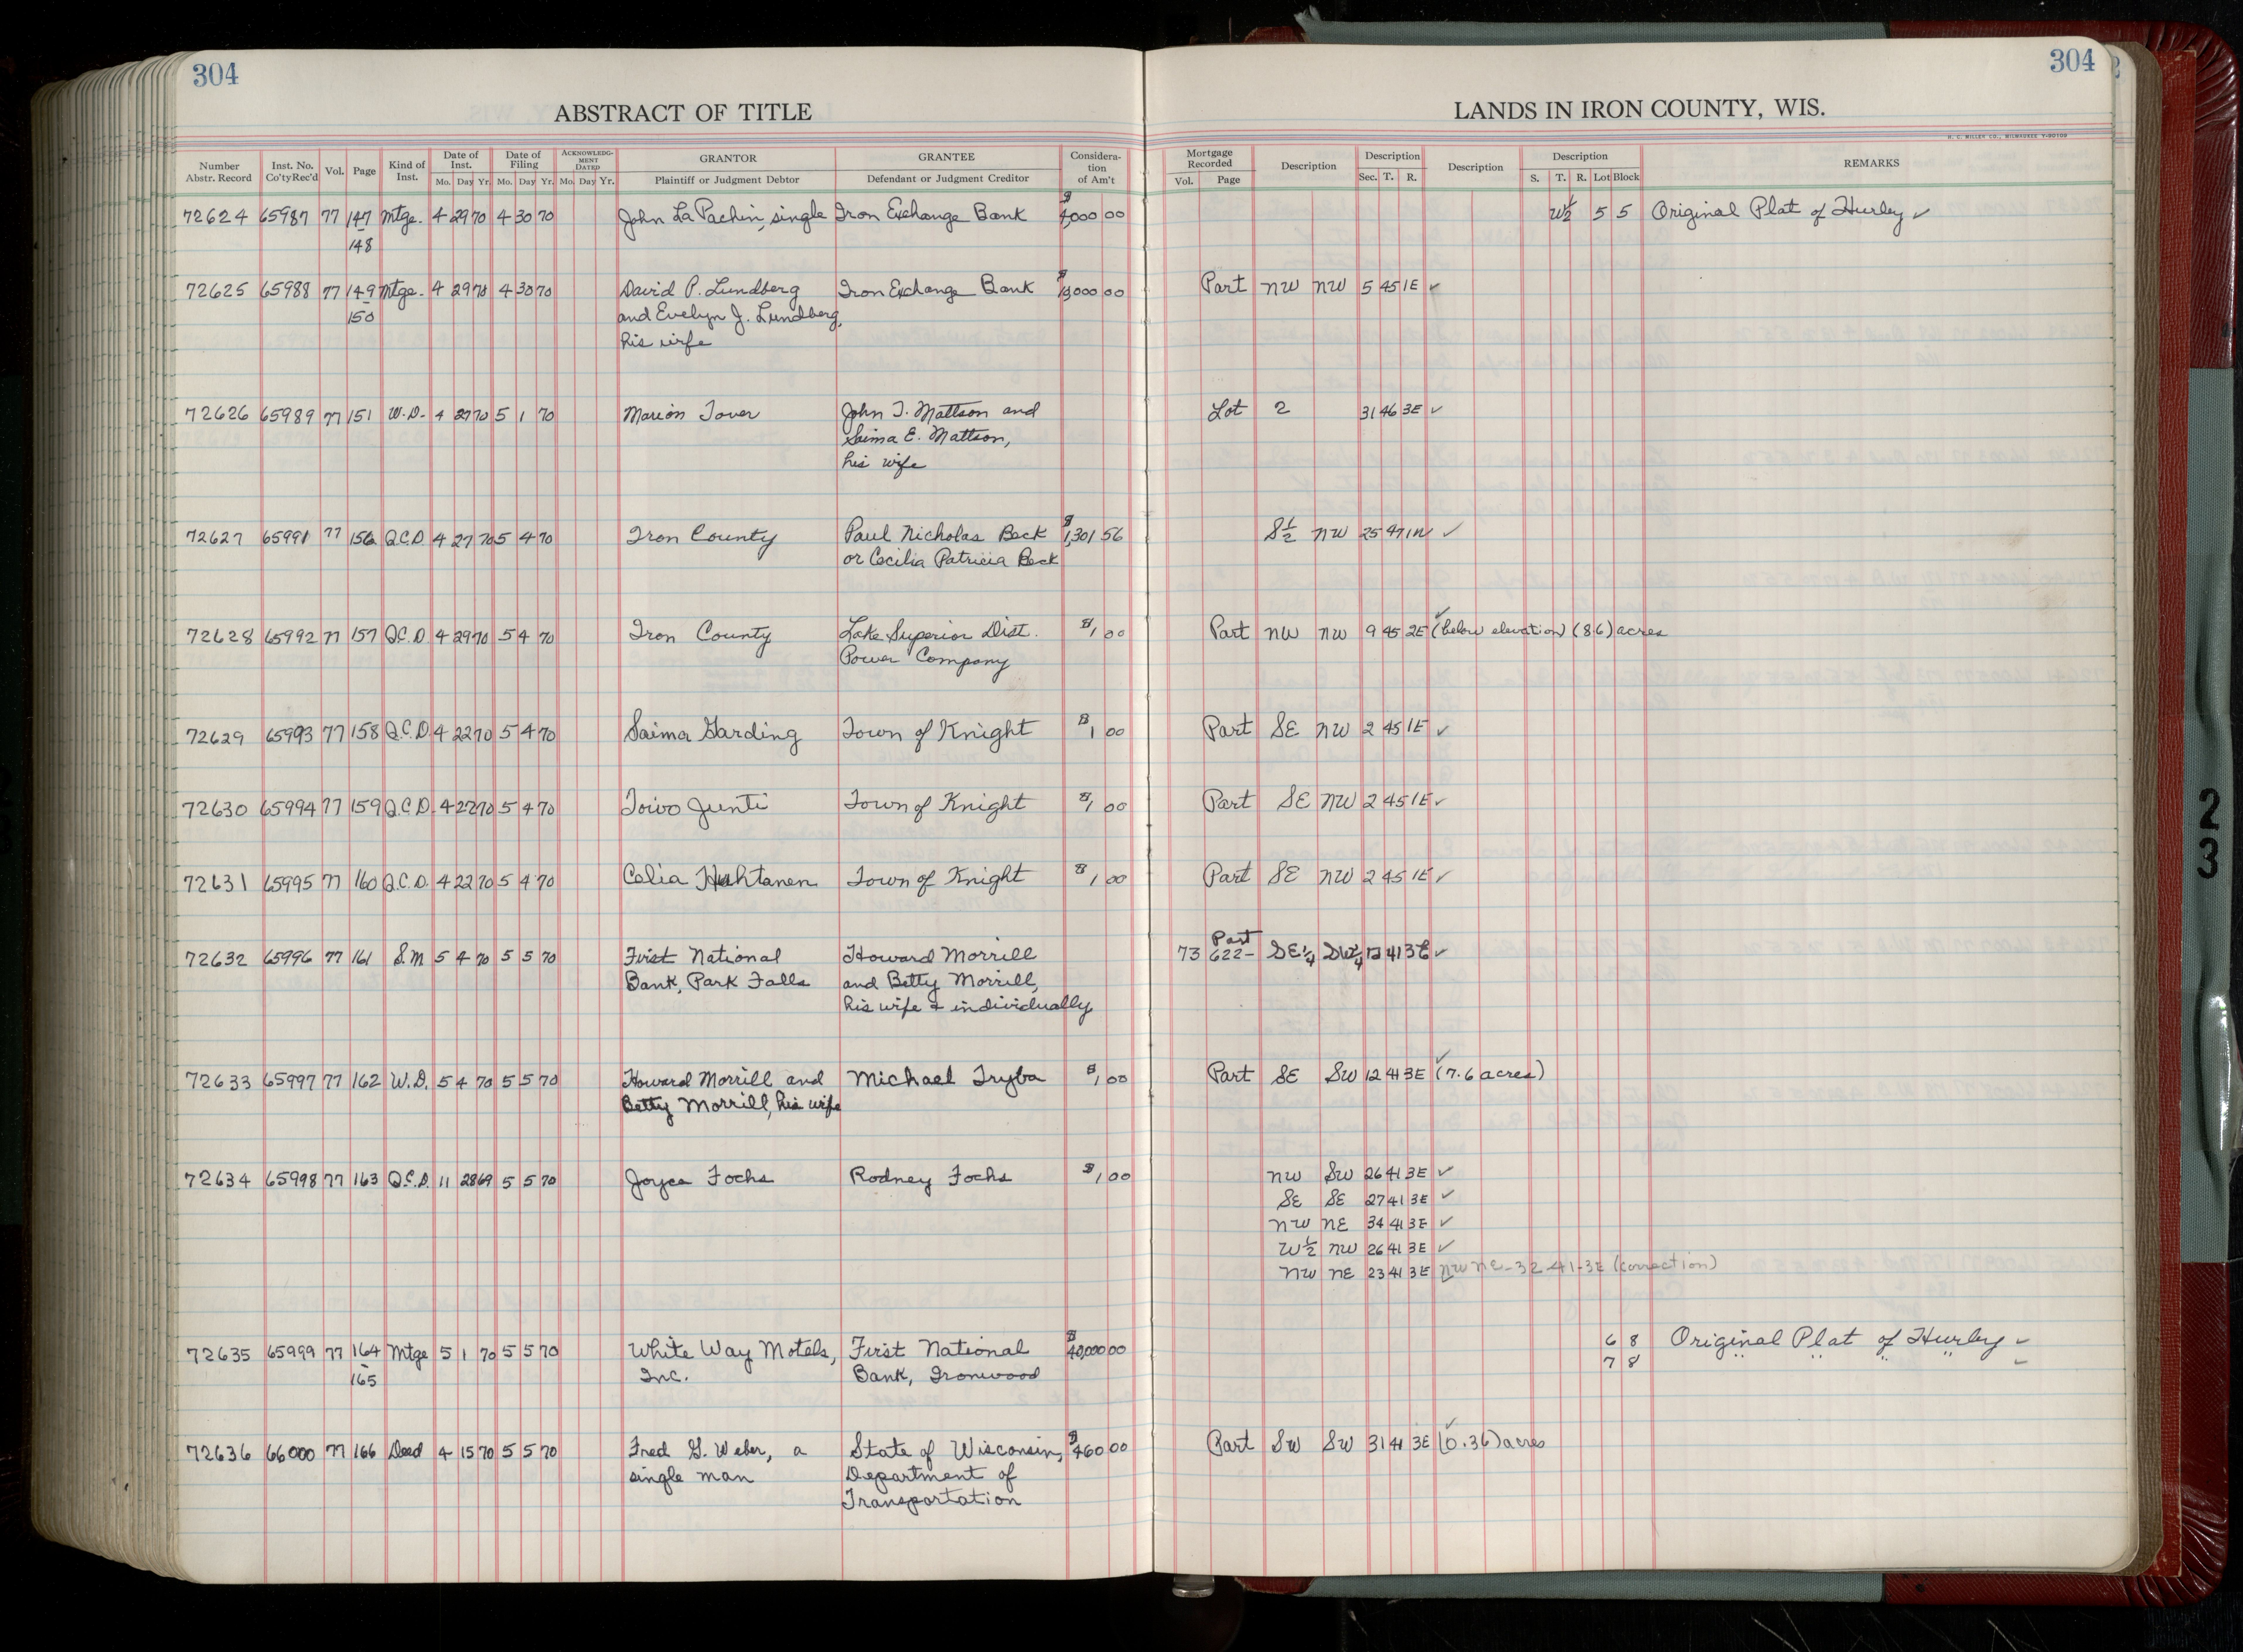 304
304
ABSTRACT OF TITLE
LANDS IN IRON COUNTY, WIS.
H. C. MILLER CO., MILWAUKEE
Number Abstr. Record | Inst. No. Co'ty Rec'd | Vol. | Page | Kind of Inst. | Date of Inst. Mo. Day Yr. | Date of Filing Mo. Day Yr. | ACKNOWLEDGMENT DATED Mo. Day Yr. | GRANTOR Plaintiff or Judgment Debtor | GRANTEE Defendant or Judgment Creditor | Consideration of Am't | Mortgage Recorded Vol. Page | Description | Description Sec. T. R. | Description | Description S. T. R. Lot Block | REMARKS
72624 65987 77 147 Mtge. 4 29 70 4 30 70 John La Pachin, single Iron Exchange Bank $ 4,000 00 W½ 5 5 Original Plat of Hurley ✓
- 148
72625 65988 77 149 Mtge. 4 29 70 4 30 70 David P. Lundberg Iron Exchange Bank $ 13,000 00 Part NW NW 5 45 1E ✓
- 150 and Evelyn J. Lundberg,
his wife
72626 65989 77 151 W.D. 4 27 70 5 1 70 Marion Tover John T. Mattson and Lot 2 31 46 3E ✓
Saima E. Mattson,
his wife
72627 65991 77 156 Q.C.D. 4 27 70 5 4 70 Iron County Paul Nicholas Beck $ 1,301 56 S½ NW 25 47 1W ✓
or Cecilia Patricia Beck
72628 65992 77 157 Q.C.D. 4 29 70 5 4 70 Iron County Lake Superior Dist. $ 1 00 Part NW NW 9 45 2E ✓ (below elevation) (86) acres
Power Company
72629 65993 77 158 Q.C.D. 4 22 70 5 4 70 Saima Garding Town of Knight $ 1 00 Part SE NW 2 45 1E ✓
72630 65994 77 159 Q.C.D. 4 22 70 5 4 70 Toivo Junti Town of Knight $ 1 00 Part SE NW 2 45 1E ✓
72631 65995 77 160 Q.C.D. 4 22 70 5 4 70 Celia Huhtanen Town of Knight $ 1 00 Part SE NW 2 45 1E ✓
Part
72632 65996 77 161 S.M 5 4 70 5 5 70 First National Howard Morrill 73 622- SE¼ SW¼ 12 41 3E ✓
Bank, Park Falls and Betty Morrill,
his wife & individually
72633 65997 77 162 W.D. 5 4 70 5 5 70 Howard Morrill and Michael Tryba $ 1 00 Part SE SW 12 41 3E ✓ (7.6 acres)
Betty Morrill, his wife
72634 65998 77 163 Q.C.D. 11 28 69 5 5 70 Joyce Fochs Rodney Fochs $ 1 00 NW SW 26 41 3E ✓
SE SE 27 41 3E ✓
NW NE 34 41 3E ✓
W½ NW 26 41 3E ✓
NW NE 23 41 3E NW NE-32-41-3E (correction)
72635 65999 77 164 Mtge 5 1 70 5 5 70 White Way Motels, First National $ 40,000 00 6 8 Original Plat of Hurley ✓
- 165 Inc. Bank, Ironwood 7 8 " " " " ✓
72636 66000 77 166 Deed 4 15 70 5 5 70 Fred G. Weber, a State of Wisconsin, $ 460 00 Part SW SW 31 41 3E ✓ (0.36) acres
single man Department of
Transportation
23